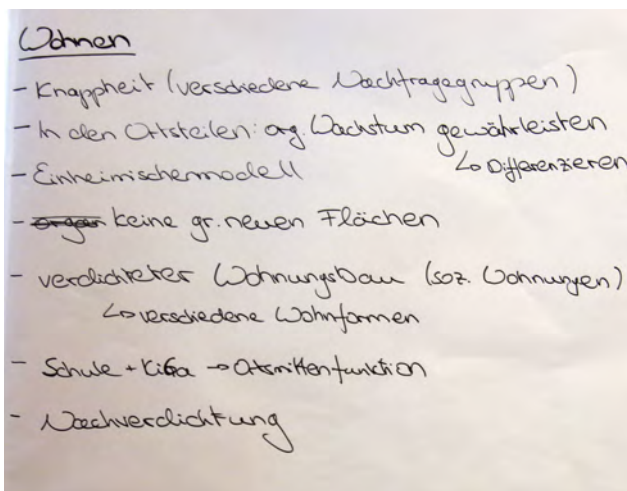 Wohnen
- Knappheit (verschiedene Nachfragegruppen)
- In den Ortsteilen: org. Wachstum gewährleisten
↳ Differenzieren
- Einheimischenmodell
- keine gr. neuen Flächen
- verdichteter Wohnungsbau (soz. Wohnungen)
↳ verschiedene Wohnformen
- Schule + KiGa → Ortsmittenfunktion
- Nachverdichtung